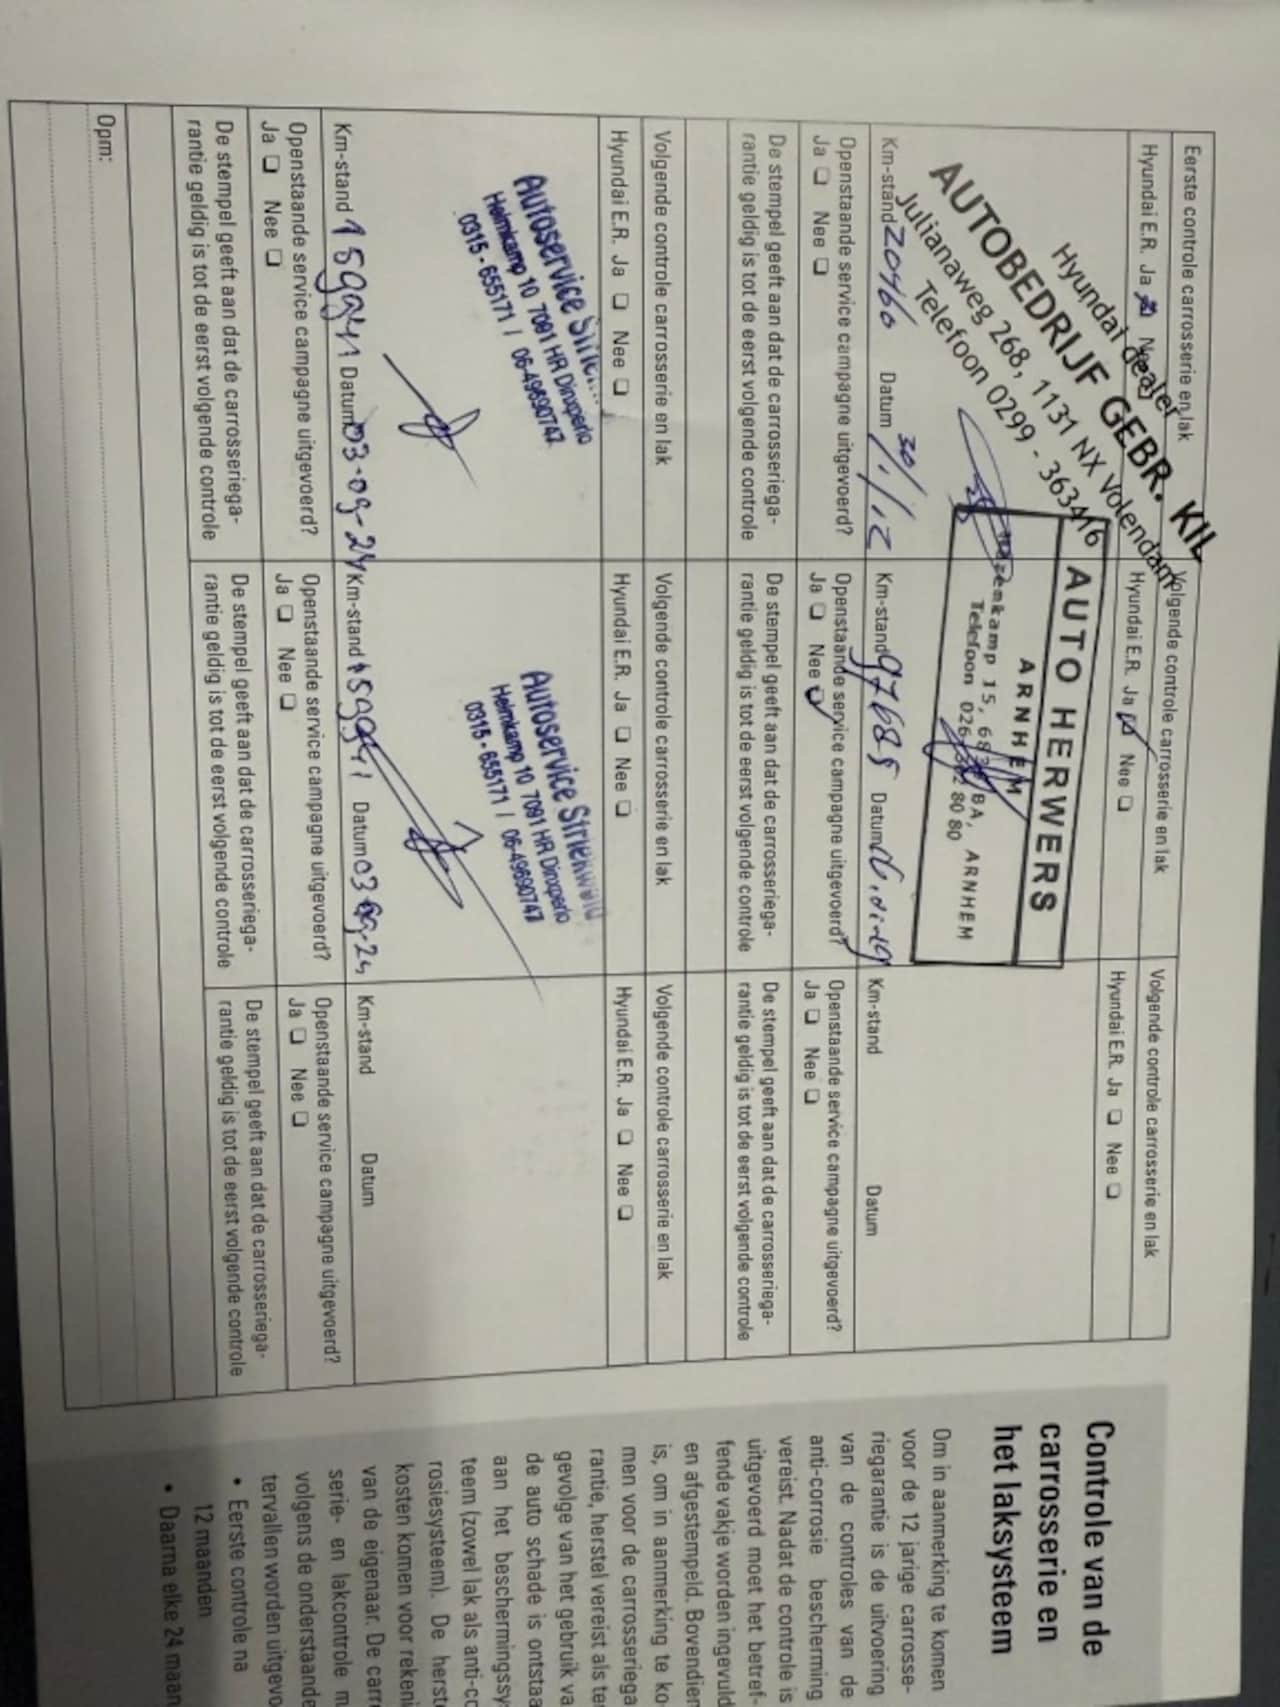 Eerste controle carrosserie en lak
Hyundai E.R. Ja Nee
Hyundai dealer
AUTOBEDRIJF GEBR. KIL
Julianaweg 268, 1131 NX Volendam
Telefoon 0299 - 363416
Km-stand 20460 Datum 30/1/12
Openstaande service campagne uitgevoerd?
Ja ❑ Nee ❑
De stempel geeft aan dat de carrosseriega-
rantie geldig is tot de eerst volgende controle
Volgende controle carrosserie en lak
Hyundai E.R. Ja Nee ❑
AUTO HERWERS
ARNHEM
BA, ARNHEM
Telefoon 026 80 80
Km-stand 97685 Datum
Openstaande service campagne uitgevoerd?
Ja ❑ Nee
De stempel geeft aan dat de carrosseriega-
rantie geldig is tot de eerst volgende controle
Volgende controle carrosserie en lak
Hyundai E.R. Ja ❑ Nee ❑
Km-stand Datum
Openstaande service campagne uitgevoerd?
Ja ❑ Nee ❑
De stempel geeft aan dat de carrosseriega-
rantie geldig is tot de eerst volgende controle
Volgende controle carrosserie en lak
Hyundai E.R. Ja ❑ Nee ❑
Autoservice
Helmkamp 10 7091 HR Dinxperlo
0315 - 655171 / 06-49690747
Km-stand 159941 Datum 03-09-24
Openstaande service campagne uitgevoerd?
Ja ❑ Nee ❑
De stempel geeft aan dat de carrosseriega-
rantie geldig is tot de eerst volgende controle
Volgende controle carrosserie en lak
Hyundai E.R. Ja ❑ Nee ❑
Autoservice
Helmkamp 10 7091 HR Dinxperlo
0315 - 655171 / 06-49690747
Km-stand 159941 Datum 03-09-24
Openstaande service campagne uitgevoerd?
Ja ❑ Nee ❑
De stempel geeft aan dat de carrosseriega-
rantie geldig is tot de eerst volgende controle
Volgende controle carrosserie en lak
Hyundai E.R. Ja ❑ Nee ❑
Km-stand Datum
Openstaande service campagne uitgevoerd?
Ja ❑ Nee ❑
De stempel geeft aan dat de carrosseriega-
rantie geldig is tot de eerst volgende controle
Opm:
Controle van de
carrosserie en
het laksysteem
Om in aanmerking te komen
voor de 12 jarige carrosse-
riegarantie is de uitvoering
van de controles van de
anti-corrosie bescherming
vereist. Nadat de controle is
uitgevoerd moet het betref-
fende vakje worden ingevuld
en afgestempeld. Bovendien
is, om in aanmerking te ko-
men voor de carrosseriega
rantie, herstel vereist als
gevolg van het gebruik
de auto schade is
aan het
teem (zowel lak als
rosiesysteem). De
kosten komen voor
van de eigenaar. De
serie- en lakcontrole
volgens de onderstaande
tervallen worden
• Eerste controle na
12 maanden
• Daarna elke 24